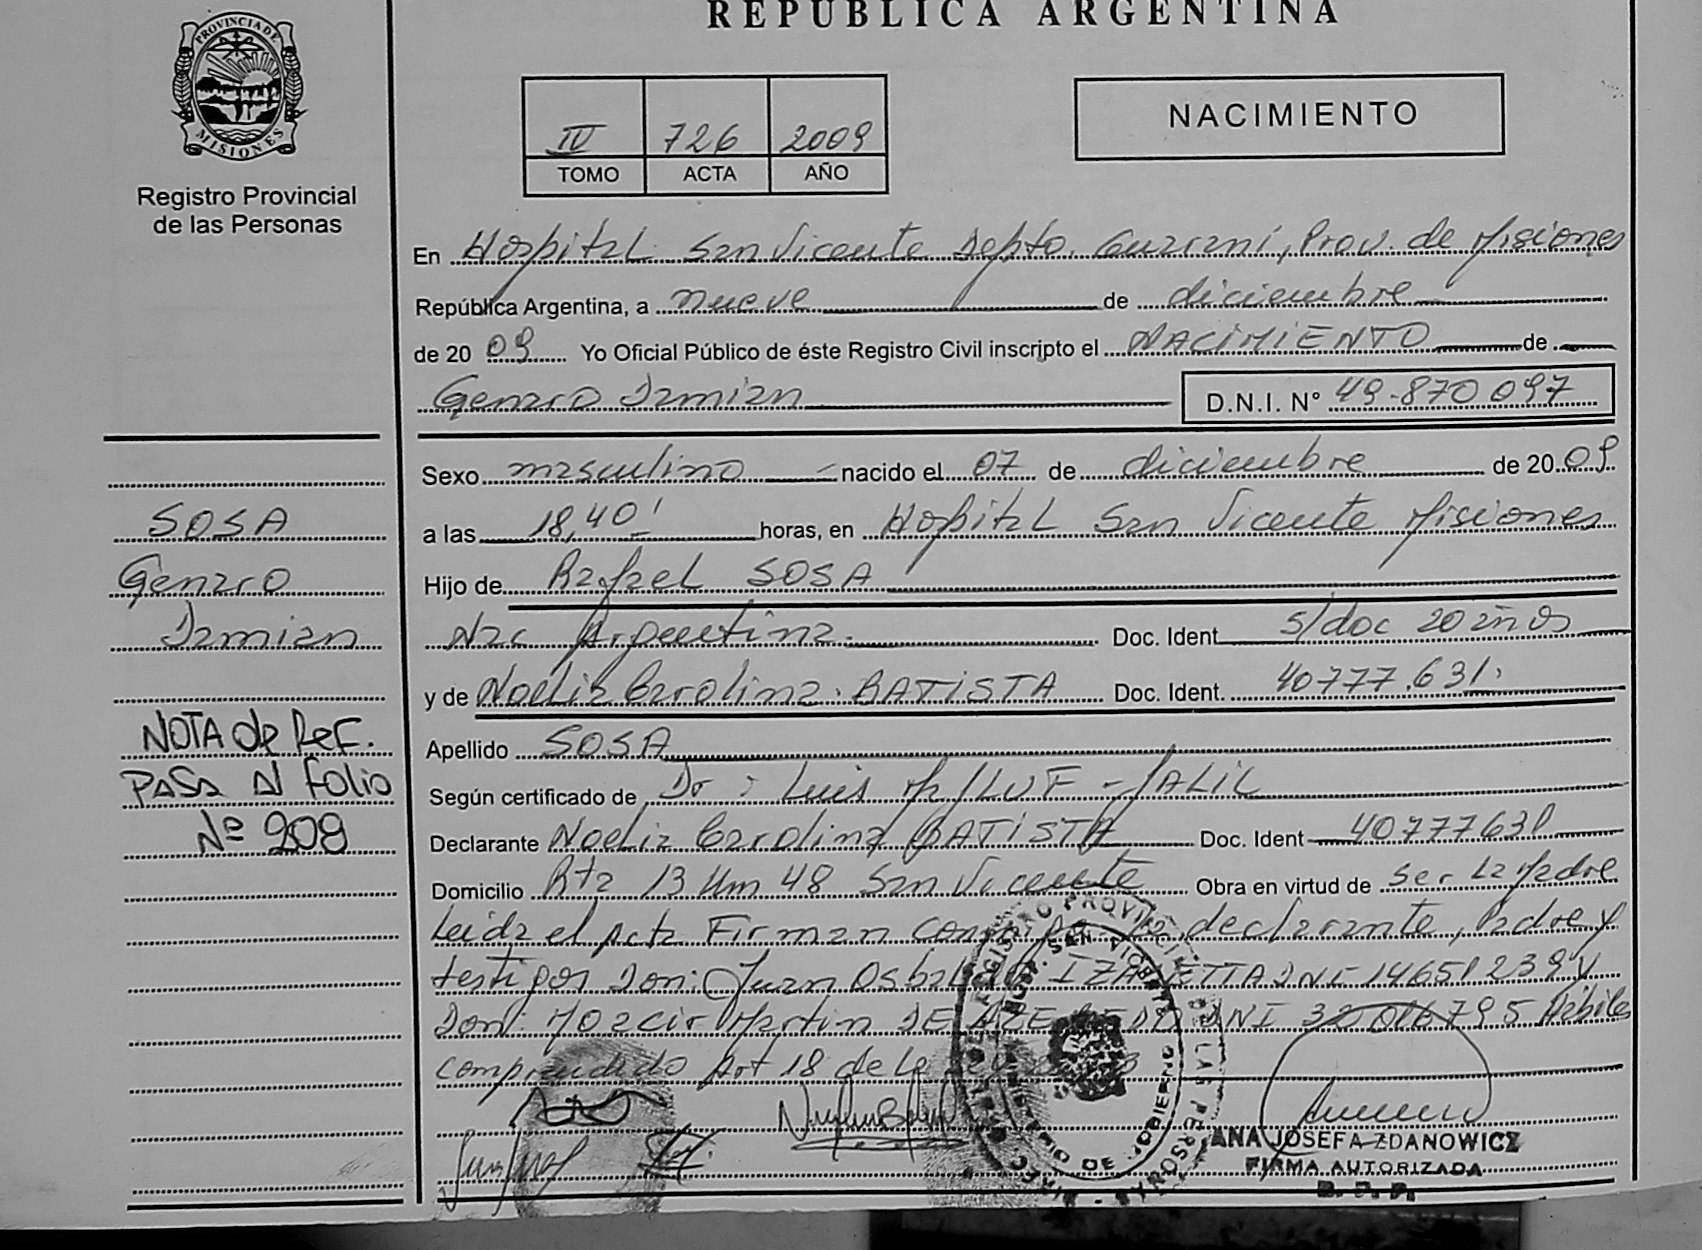 REPÚBLICA ARGENTINA
PROVINCIA DE
MISIONES
Registro Provincial
de las Personas
IV 726 2009
TOMO ACTA AÑO
NACIMIENTO
En Hospital San Vicente Depto. Guaraní, Prov. de Misiones
República Argentina, a nueve de diciembre
de 20 09 Yo Oficial Público de éste Registro Civil inscripto el NACIMIENTO de
Genaro Damian D.N.I. N° 49.870 097
Sexo masculino nacido el 07 de diciembre de 20 09
a las 18,40' horas, en Hospital San Vicente Misiones
Hijo de Rafael SOSA
Nac Argentina. Doc. Ident s/doc 20 años
y de Noelia Carolina. BATISTA Doc. Ident. 40777.631.
Apellido SOSA
Según certificado de Dr : Luis JALIL
Declarante Noelia Carolina BATISTA Doc. Ident 40777631
Domicilio Rta 13 Km 48 San Vicente Obra en virtud de ser la Madre
Leida el Acta Firman declarante, Padre y
testigos Don: Juan DNI 14651239 y
Don: Moacir Martin DNI 32016795 Hábiles
comprendido Art 18 de
SOSA
Genaro
Damian
NOTA de Ref.
PASA Al folio
Nº 208
REGISTRO PROVINCIAL DE LAS PERSONAS
HOSP. SAN VICENTE
MINISTERIO DE GOBIERNO
ANA JOSEFA ZDANOWICZ
FIRMA AUTORIZADA